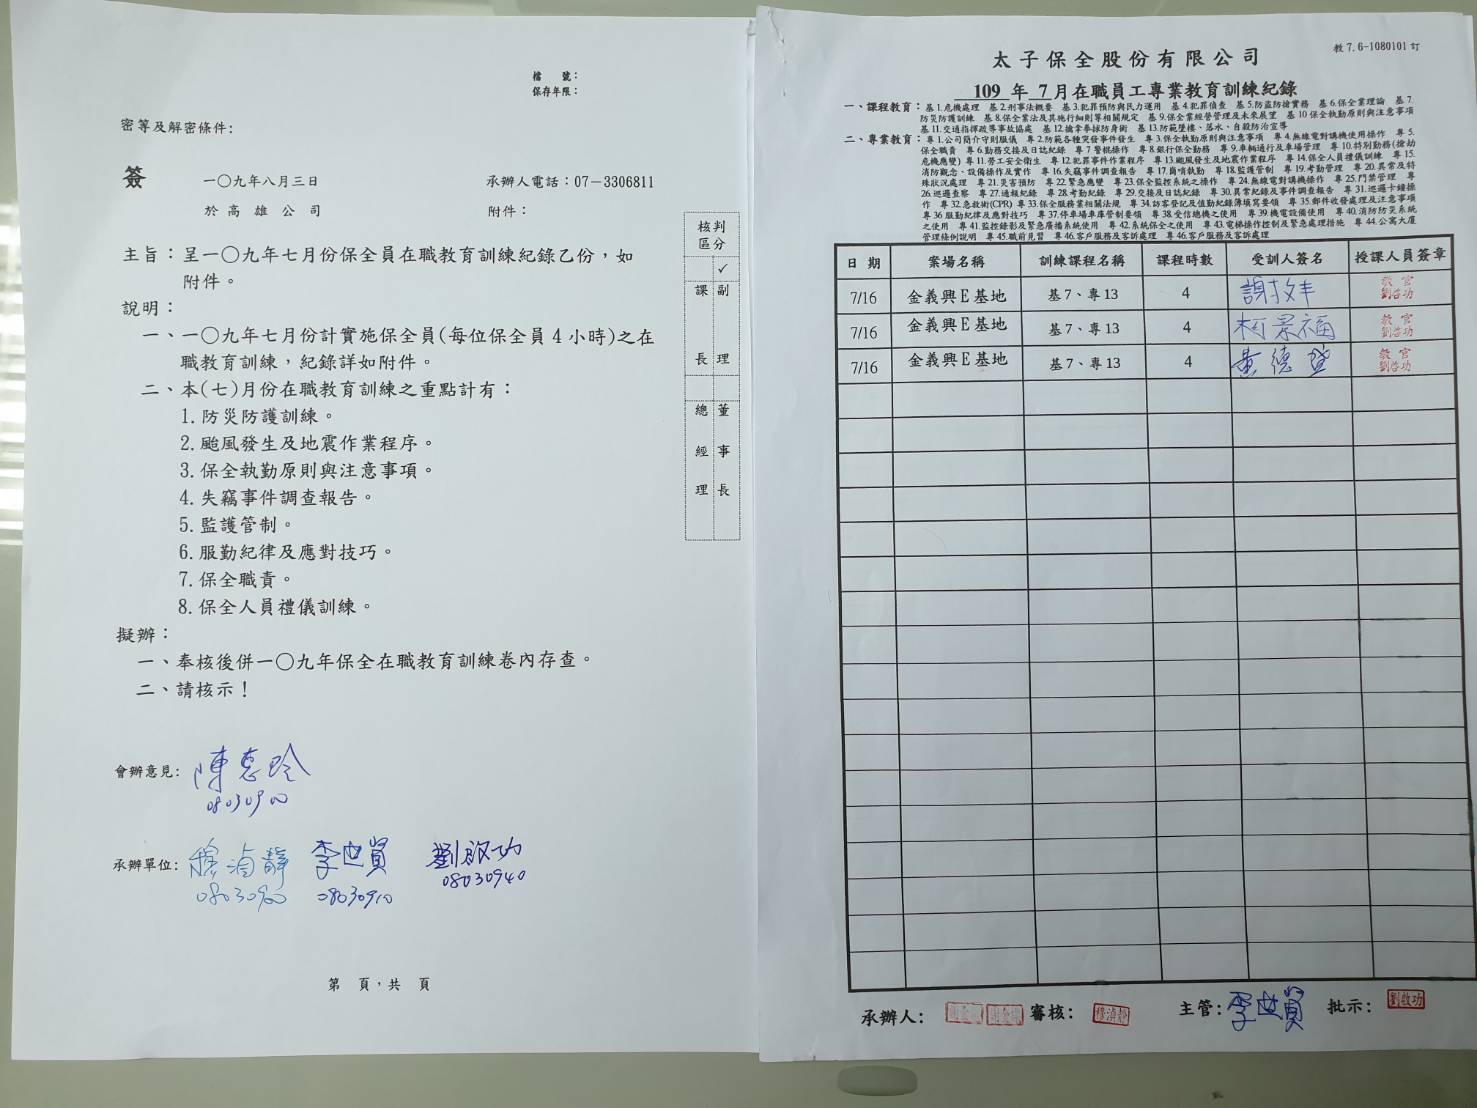 檔　號：
保存年限：
密等及解密條件：
簽　一〇九年八月三日　承辦人電話：07－3306811
於高雄公司　附件：
核判
區分
✓
課長
副理
總經理
董事長
主旨：呈一〇九年七月份保全員在職教育訓練紀錄乙份，如
附件。
說明：
一、一〇九年七月份計實施保全員(每位保全員4小時)之在
職教育訓練，紀錄詳如附件。
二、本(七)月份在職教育訓練之重點計有：
1.防災防護訓練。
2.颱風發生及地震作業程序。
3.保全執勤原則與注意事項。
4.失竊事件調查報告。
5.監護管制。
6.服勤紀律及應對技巧。
7.保全職責。
8.保全人員禮儀訓練。
擬辦：
一、奉核後併一〇九年保全在職教育訓練卷內存查。
二、請核示！
會辦意見：陳惠玲
08030900
承辦單位：穆湞靜　李世賞　劉啟功
08030900　08030910　08030940
第　頁，共　頁
教7.6-1080101訂
太子保全股份有限公司
109 年 7 月在職員工專業教育訓練紀錄
一、課程教育：基1.危機處理　基2.刑事法概要　基3.犯罪預防與民力運用　基4.犯罪偵查　基5.防盜防搶實務　基6.保全業理論　基7.
防災防護訓練　基8.保全業法及其施行細則等相關規定　基9.保全業經營管理及未來展望　基10保全執勤原則與注意事項
基11.交通指揮疏導事故協處　基12.擒拿拳操防身術　基13.防範墜樓、落水、自殺防治宣導
二、專業教育：專1.公司簡介守則服儀　專2.防範各種突發事件發生　專3.保全執勤原則與注意事項　專4.無線電對講機使用操作　專5.
保全職責　專6.勤務交接及日誌紀錄　專7警棍操作　專8.銀行保全勤務　專9.車輛通行及車場管理　專10.特別勤務(搶劫
危機應變)　專11.勞工安全衛生　專12.犯罪事件作業程序　專13.颱風發生及地震作業程序　專14.保全人員禮儀訓練　專15.
消防觀念、設備操作及實作　專16.失竊事件調查報告　專17.崗哨執勤　專18.監護管制　專19.考勤管理　專20.異常及特
殊狀況處理　專21.災害預防　專22.緊急應變　專23.保全監控系統之操作　專24.無線電對講機操作　專25.門禁管理　專
26.巡邏查察　專27.通報紀錄　專28.考勤紀錄　專29.交接及日誌紀錄　專30.異常紀錄及事件調查報告　專31.巡邏卡鐘操
作　專32.急救術(CPR)　專33.保全服務業相關法規　專34.訪客登記及值勤紀錄簿填寫要領　專35.郵件收發處理及注意事項
專36服勤紀律及應對技巧　專37.停車場車庫管制要領　專38.受信總機之使用　專39.機電設備使用　專40.消防防災系統
之使用　專41.監控錄影及緊急廣播系統使用　專42.系統保全之使用　專43.電梯操作控制及緊急處理措施　專44.公寓大廈
管理條例說明　專45.職前見習　專46.客戶服務及客訴處理　專46.客戶服務及客訴處理
日期　案場名稱　訓練課程名稱　課程時數　受訓人簽名　授課人員簽章
7/16　金義興E基地　基7、專13　4　謝孜丰　教官劉啓功
7/16　金義興E基地　基7、專13　4　柯景福　教官劉啓功
7/16　金義興E基地　基7、專13　4　黃德登　教官劉啓功
承辦人：　審核：穆湞靜　主管：李世賞　批示：劉啟功